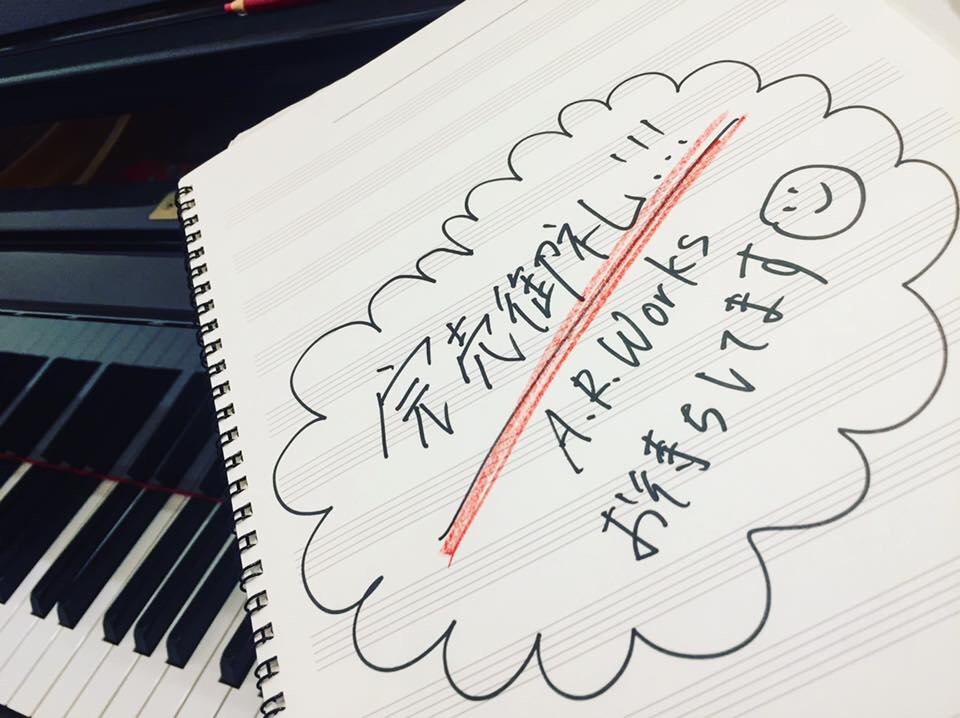 完売御礼!!!
A.R.Works
お待ちしてます